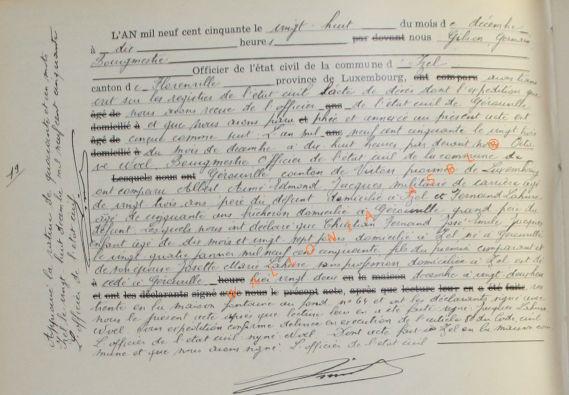 L'AN mil neuf cent cinquante le vingt-huit du mois de décembre
à dix heures par devant nous Gilson Germain
Bourgmestre
Officier de l'état civil de la commune d'Izel
canton de Florenville province de Luxembourg, ont comparu avons transcrit
sur les registres de l'état civil l'acte de décès dont l'expédition que
âgé de nous avons reçue de l'officier de l'état civil de Gérouville
domicilié à et que nous avons et annexé au présent acte est
âgé de conçue comme suit: L'an mil neuf cent cinquante le vingt trois
domicilié à du mois de décembre à dix huit heures par devant nous
Noël Bourgmestre Officier de l'état civil de la commune de
Lesquels nous ont Gérouville canton de Virton province de Luxembourg
ont comparu Albert Aimé Edmond Jacques militaire de carrière âgé
de vingt trois ans père du défunt domicilié à Izel et Fernand Lahure
âgé de cinquante ans domicilié à Gérouville grand père du
défunt lesquels nous ont déclaré que Christian Fernand José Emile Jacques
enfant âgé de dix mois et vingt sept jours domicilié à Izel né à Gérouville
le vingt quatre janvier mil neuf cent cinquante fils du premier comparant et
de son épouse Josette Marie Lahure sans profession domiciliée à Izel est dé
cédé à Gérouville heure vingt deux en la maison décembre à vingt
et ont les déclarants signé avec nous le présent acte, après que lecture leur en a été faite
heures en la maison paternelle au fond n° 64 et ont les déclarants signé avec
nous le présent acte après que lecture leur en a été faite signé Jacques Lahure
Noël. Pour expédition conforme délivrée en exécution de l'article du Code civil
L'officier de l'état civil signé Noël. Dont acte fait à Izel en la maison com
mune et que nous avons signé. L'officier de l'état civil
19
Approuvé la rature de quarante et un mots
Izel le vingt huit décembre mil neuf cent cinquante
L'officier de l'état civil
GILSONNA ASBL